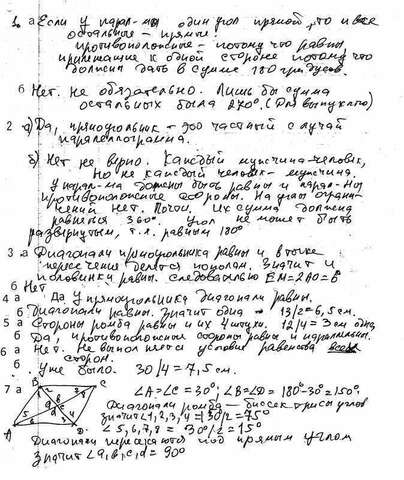 1. а Если у парал-ма один угол прямой, то и все
остальные - прямые.
противоположные - потому что равны,
прилежащие к одной стороне потому что
должны дать в сумме 180 градусов.
б Нет. не обязательно. Лишь бы сумма
остальных была 270°. (Для выпуклого)
2 а) Да, прямоугольник - это частный случай
параллелограмма.
б) Нет не верно. Каждый мужчина-человек,
но не каждый человек - мужчина.
У парал-ма должны быть равны и парал-ны
противоположные стороны. На углы ограни-
чений нет. Почти, их сумма должна
равняться 360°. Угол не может быть
развёрнутым, т.е. равным 180°
3 а Диагонали прямоугольника равны и в точке
пересечения делятся пополам. Значит и
половинки равны. следовательно =2АО=
б Нет
4 а Да У прямоугольника диагонали равны.
б Диагонали равны. Значит одна - 13/2=6,5см.
5 а Стороны ромба равны и их 4 штуки. 12/4=3см одна
б Да, противоположные стороны равны и параллельны.
6 а Нет. Не выполняется условие равенства всех
сторон.
б Уже было. 30/4=7,5см.
7 а В С
∠A=∠C=30°; ∠B=∠D=180°-30°=150°
Диагонали ромба - биссектрисы углов
значит ∠1,2,3,4=150/2=75°
∠5,6,7,8=30°/2=15°
А D
Диагонали пересекаются под прямым углом
значит ∠a,b,c,d=90°